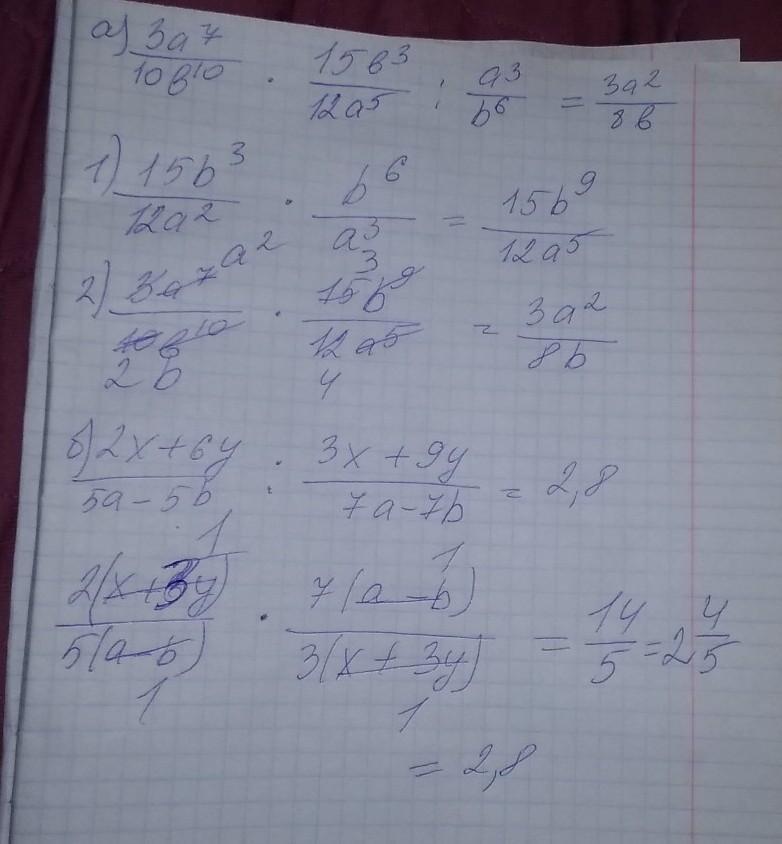 а) 3a⁷/10b¹⁰ · 15b³/12a⁵ : a³/b⁶ = 3a²/8b
1) 15b³/12a² · b⁶/a³ = 15b⁹/12a⁵
2) 3a⁷ a²/10b¹⁰ 2b · 3 15b⁹/12a⁵ 4 = 3a²/8b
б) 2x+6y/5a-5b : 3x+9y/7a-7b = 2,8
2(x+3y) 1/5(a-b) 1 · 7(a-b) 1/3(x+3y) 1 = 14/5 = 2 4/5
= 2,8